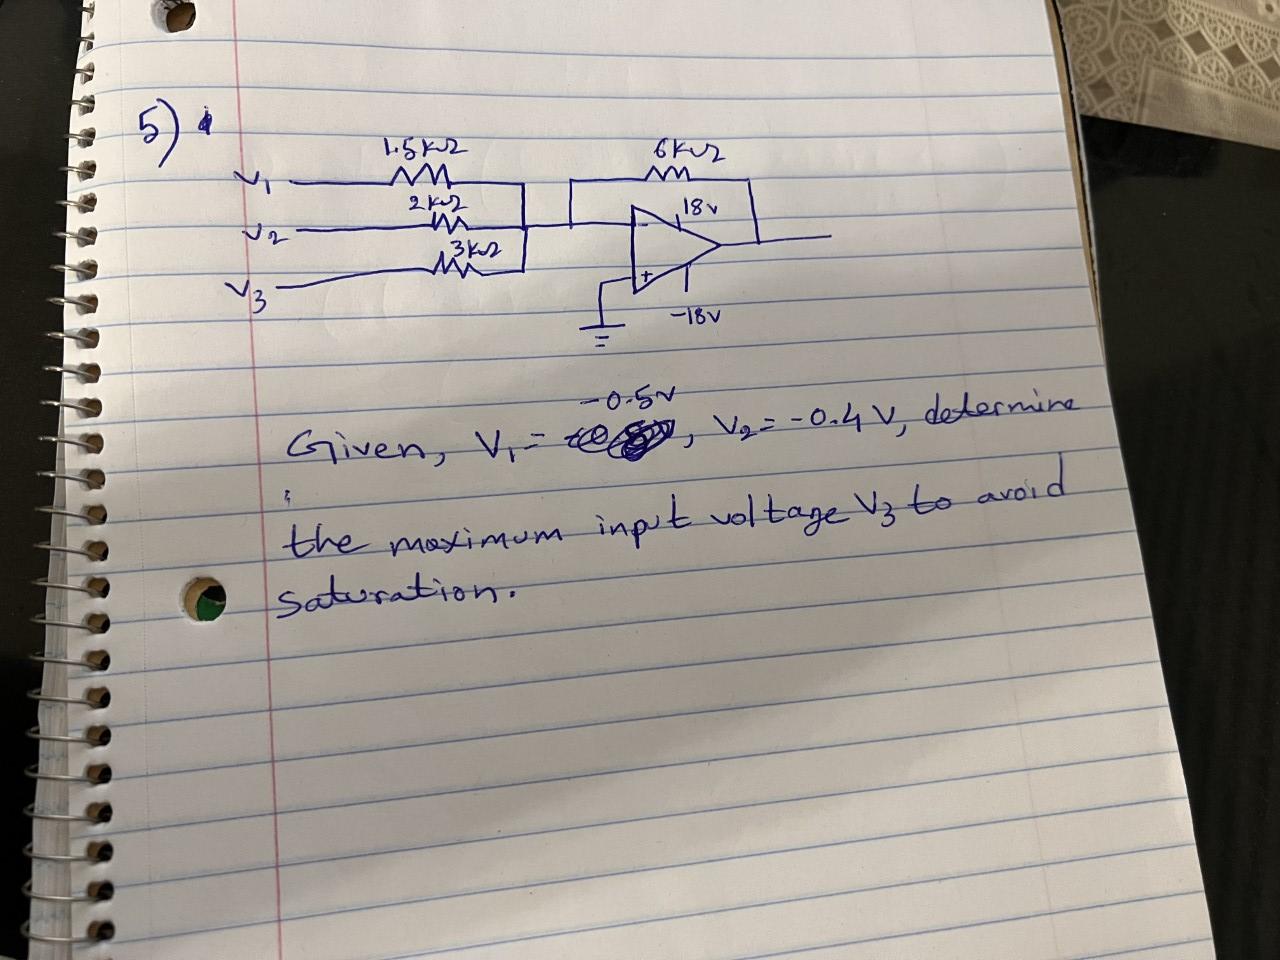 5)
1.5kΩ
6kΩ
V1
2kΩ
18v
V2
3kΩ
-
+
V3
-18v
-0.5v
Given, V1= , V2=-0.4V, determine
the maximum input voltage V3 to avoid
saturation.